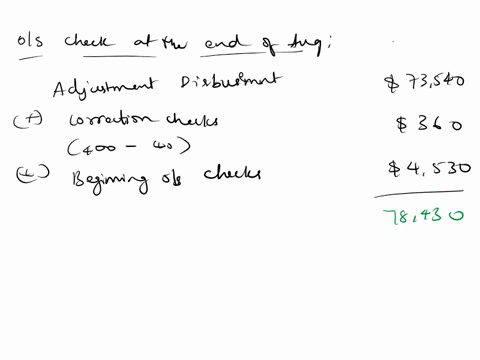 o/s check at the end of Aug:
Adjustment Disbusment $73,540
(+) correction checks $360
(400 - 40)
(+) Beginning o/s checks $4,530
78,430